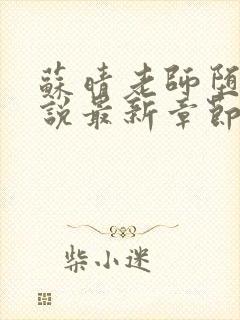 蘇晴老師堕
說最新章節
柴小迷